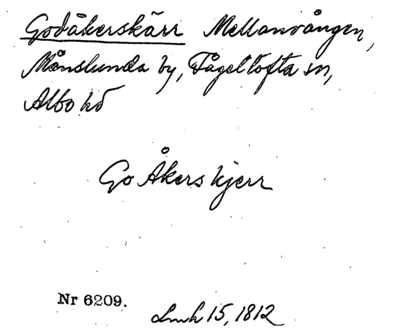 Godåkerskärr Mellanvången,
Månslunda by, Fågeltofta sn,
Albo hd
Go Åkers kjerr
Nr 6209.
Lmh 15, 1812